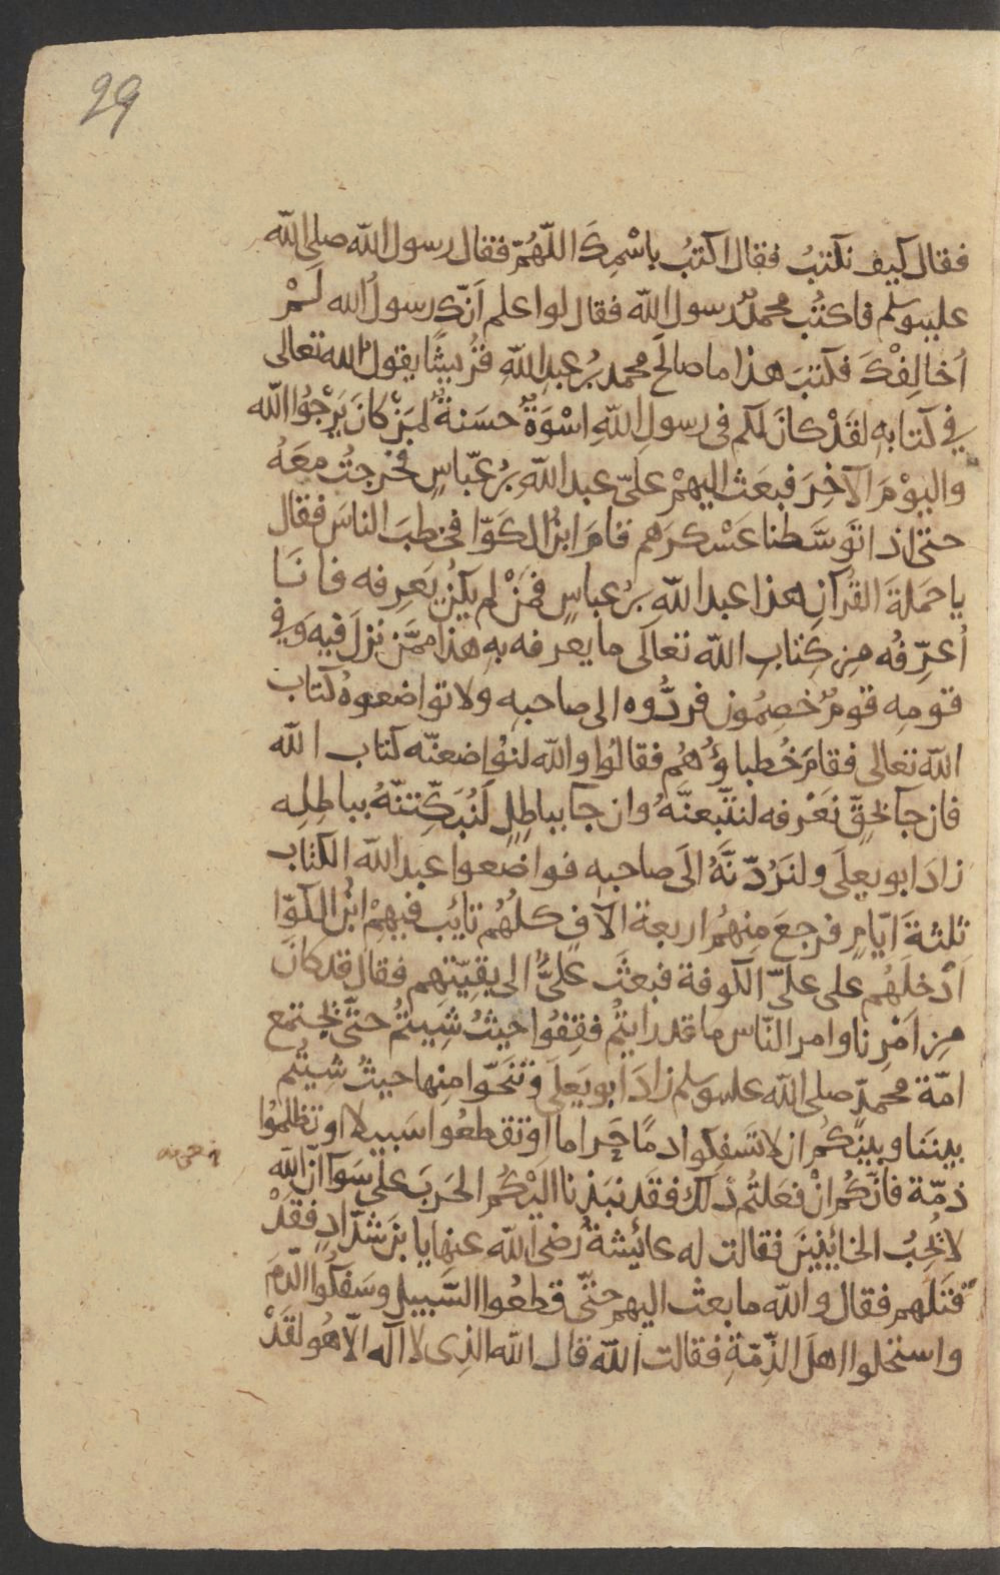 29
فقال كيف نكتبُ فقال اكتبُ باسْمِكَ اللّهُمّ فقال رسول الله صلى الله
عليه وسلم فاكتُب محمدٌ رسول الله فقال لو اعلم اَنّك رسولُ الله لَمْ
اُخالِفْكَ فكتبَ هذا ما صالح محمد بن عبد اللهِ قُريشًا يقول الله تعالى
في كتابه لقَدْ كانَ لكم في رسولِ اللهِ اسْوَةٌ حسَنةٌ لمَنْ كانَ يَرْجُوا الله
واليوْمَ الآخِرَ فبعَث اليهمْ علىّ عبد الله بن عبّاسٍ فخرجتُ معَهُ
حتى اذا تَوسَّطنا عَسْكرَهم قامَ ابنُ الكَوّا فخطبَ الناسَ فقال
يا حمَلةَ القُرآنِ هذا عبد اللهِ بن عباسٍ فمَنْ لم يكن يَعرِفه فانَا
اُعرِّفُه مِن كِتابِ الله تعالَى ما يعرفه بهِ هذا ممَّن نزلَ فيه وَفي
قومِه قومٌ خصِمُون فردُّوه الى صاحبه ولا تواضعوهُ كتابَ
الله تعالى فقامَ خُطباؤُهُم فقالوا والله لنُواضعنّه كتاب الله
فان جآ بحقٍّ نعْرفه لنتّبعنَّهُ وان جآ بباطِلٍ لَنُبَكِّتنّهُ بباطِلِه
زادَ ابو يعلَى ولنَرُدّنَّهُ الَى صاحبِه فواضعوا عبد الله الكتاب
ثلثةَ ايّامٍ فرجعَ مِنهُم اربعة الآفٍ كلّهُم تايُب فيهِمْ ابنُ الكوّا
اَدْخلَهُم على علىّ الكوفة فبعثَ علىٌّ الى بقيّتهم فقال قد كانَ
مِن اَمْرِنا وامر النّاس ما قد رايتُم فقِفُوا حيثُ شِيتُم حتّى تجتمع
امّة محمدٍ صلى الله عليه وسلم زادَ ابو يَعلَى وتَنَحّوا مِنها حيثُ شِيتُم
بينَنا وبينَكُم ان لا تَسفِكوا دمًا حَراما او تقطعُوا سَبيلا او تظلمُوا
ذمّة فانّكُم انْ فعَلتُم ذلك فقَد نبَذنا اليْكُم الحَربَ علَى سَوآ انّ الله
لا يُحِبُ الخائِنينَ فقالت له عائِشةُ رضى الله عنها يا بن شدّادٍ فقَدْ
قتَلَهم فقال والله ما بعث اليهم حتّى قطعُوا السَّبيل وسَفكُوا الدّمَ
واستحلوا اهلَ الذِّمّةِ فقالت الله قال الله الذِى لا اله الّا هُو لقَدْ